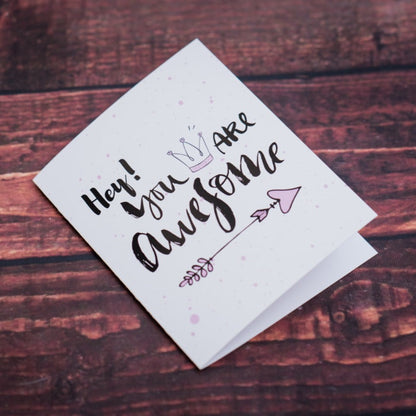 Hey!
you ARE
awesome